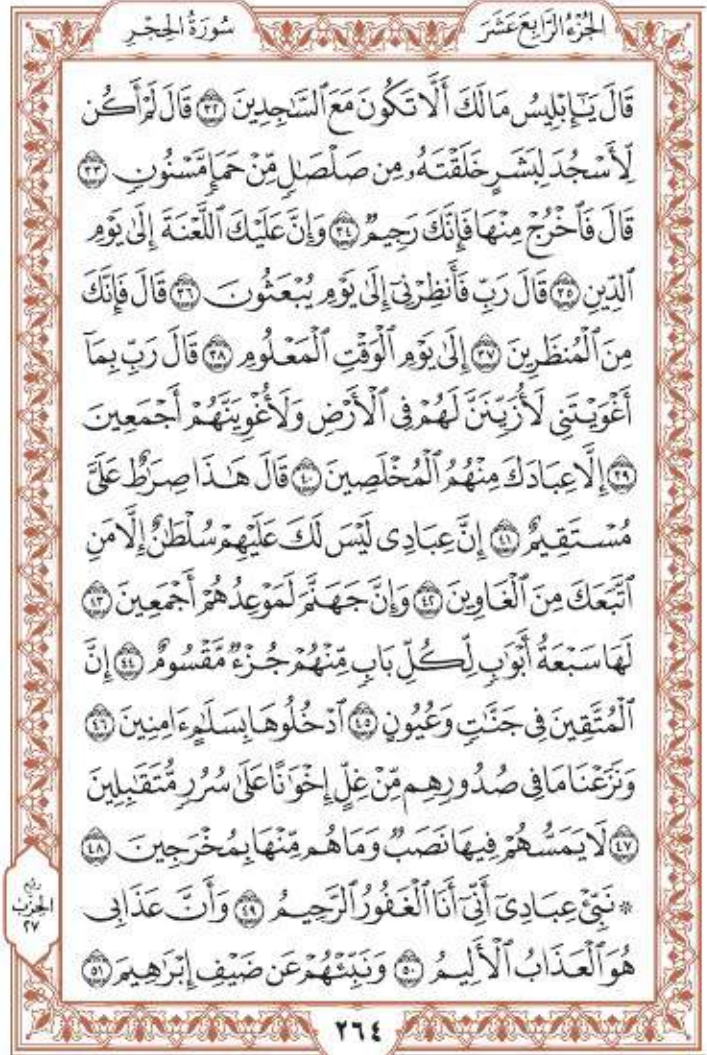 الجُزْءُ الرَّابِعَ عَشَرَ
سُورَةُ الحِجْرِ
قَالَ يَٰٓإِبْلِيسُ مَا لَكَ أَلَّا تَكُونَ مَعَ ٱلسَّٰجِدِينَ ٣٢ قَالَ لَمْ أَكُن
لِّأَسْجُدَ لِبَشَرٍ خَلَقْتَهُۥ مِن صَلْصَٰلٍ مِّنْ حَمَإٍ مَّسْنُونٍ ٣٣
قَالَ فَٱخْرُجْ مِنْهَا فَإِنَّكَ رَجِيمٌ ٣٤ وَإِنَّ عَلَيْكَ ٱللَّعْنَةَ إِلَىٰ يَوْمِ
ٱلدِّينِ ٣٥ قَالَ رَبِّ فَأَنظِرْنِىٓ إِلَىٰ يَوْمِ يُبْعَثُونَ ٣٦ قَالَ فَإِنَّكَ
مِنَ ٱلْمُنظَرِينَ ٣٧ إِلَىٰ يَوْمِ ٱلْوَقْتِ ٱلْمَعْلُومِ ٣٨ قَالَ رَبِّ بِمَآ
أَغْوَيْتَنِى لَأُزَيِّنَنَّ لَهُمْ فِى ٱلْأَرْضِ وَلَأُغْوِيَنَّهُمْ أَجْمَعِينَ
٣٩ إِلَّا عِبَادَكَ مِنْهُمُ ٱلْمُخْلَصِينَ ٤٠ قَالَ هَٰذَا صِرَٰطٌ عَلَىَّ
مُسْتَقِيمٌ ٤١ إِنَّ عِبَادِى لَيْسَ لَكَ عَلَيْهِمْ سُلْطَٰنٌ إِلَّا مَنِ
ٱتَّبَعَكَ مِنَ ٱلْغَاوِينَ ٤٢ وَإِنَّ جَهَنَّمَ لَمَوْعِدُهُمْ أَجْمَعِينَ ٤٣
لَهَا سَبْعَةُ أَبْوَٰبٍ لِّكُلِّ بَابٍ مِّنْهُمْ جُزْءٌ مَّقْسُومٌ ٤٤ إِنَّ
ٱلْمُتَّقِينَ فِى جَنَّٰتٍ وَعُيُونٍ ٤٥ ٱدْخُلُوهَا بِسَلَٰمٍ ءَامِنِينَ ٤٦
وَنَزَعْنَا مَا فِى صُدُورِهِم مِّنْ غِلٍّ إِخْوَٰنًا عَلَىٰ سُرُرٍ مُّتَقَٰبِلِينَ
٤٧ لَا يَمَسُّهُمْ فِيهَا نَصَبٌ وَمَا هُم مِّنْهَا بِمُخْرَجِينَ ٤٨
۞ نَبِّئْ عِبَادِىٓ أَنِّىٓ أَنَا ٱلْغَفُورُ ٱلرَّحِيمُ ٤٩ وَأَنَّ عَذَابِى
هُوَ ٱلْعَذَابُ ٱلْأَلِيمُ ٥٠ وَنَبِّئْهُمْ عَن ضَيْفِ إِبْرَٰهِيمَ ٥١
ربع
الحزب
٢٧
٢٦٤